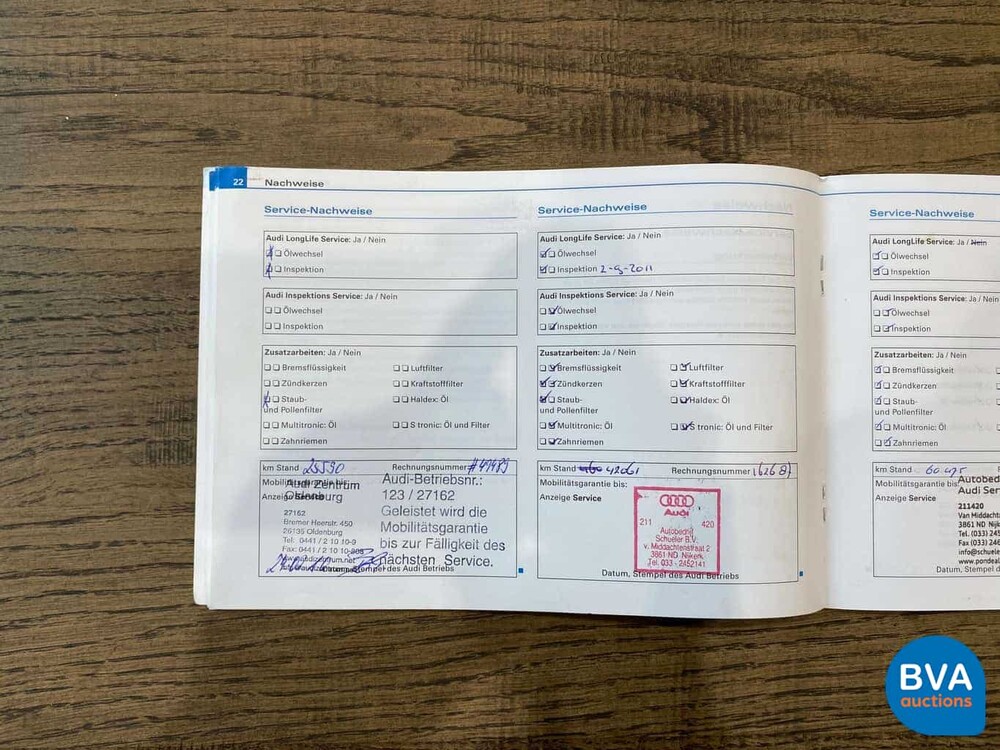 22 Nachweise
Service-Nachweise
Audi LongLife Service: Ja / Nein
Ölwechsel
Inspektion
Audi Inspektions Service: Ja / Nein
Ölwechsel
Inspektion
Zusatzarbeiten: Ja / Nein
Bremsflüssigkeit Luftfilter
Zündkerzen Kraftstofffilter
Staub- Haldex: Öl
und Pollenfilter
Multitronic: Öl S tronic: Öl und Filter
Zahnriemen
km Stand Rechnungsnummer
Mobilitätsgarantie bis:
Anzeige Service
Audi Zentrum
Oldenburg
27162
Bremer Heerstr. 450
26135 Oldenburg
Tel: 0441 / 2 10 10-9
Audi-Betriebsnr.:
123 / 27162
Geleistet wird die
Mobilitätsgarantie
bis zur Fälligkeit des
nächsten Service.
Stempel des Audi Betriebs
Service-Nachweise
Audi LongLife Service: Ja / Nein
Ölwechsel
Inspektion 2-9-2011
Audi Inspektions Service: Ja / Nein
Ölwechsel
Inspektion
Zusatzarbeiten: Ja / Nein
Bremsflüssigkeit Luftfilter
Zündkerzen Kraftstofffilter
Staub- Haldex: Öl
und Pollenfilter
Multitronic: Öl S tronic: Öl und Filter
Zahnriemen
km Stand 42061 Rechnungsnummer
Mobilitätsgarantie bis:
Anzeige Service
Audi
211 420
Autobedrijf
Schueler B.V.
v. Middachtenstraat 2
3861 ND Nijkerk
Tel. 033 - 2452141
Datum, Stempel des Audi Betriebs
Service-Nachweise
Audi LongLife Service: Ja / Nein
Ölwechsel
Inspektion
Audi Inspektions Service: Ja / Nein
Ölwechsel
Inspektion
Zusatzarbeiten: Ja / Nein
Bremsflüssigkeit
Zündkerzen
Staub-
und Pollenfilter
Multitronic: Öl
Zahnriemen
km Stand
Mobilitätsgarantie bis:
Anzeige Service
Autobed
Audi Ser
211420
Van Middacht
3861 ND Nijk
Tel. (033) 245
Fax (033) 246
info@schuele
www.pondeal
Datum, Stempel d
BVA
auctions